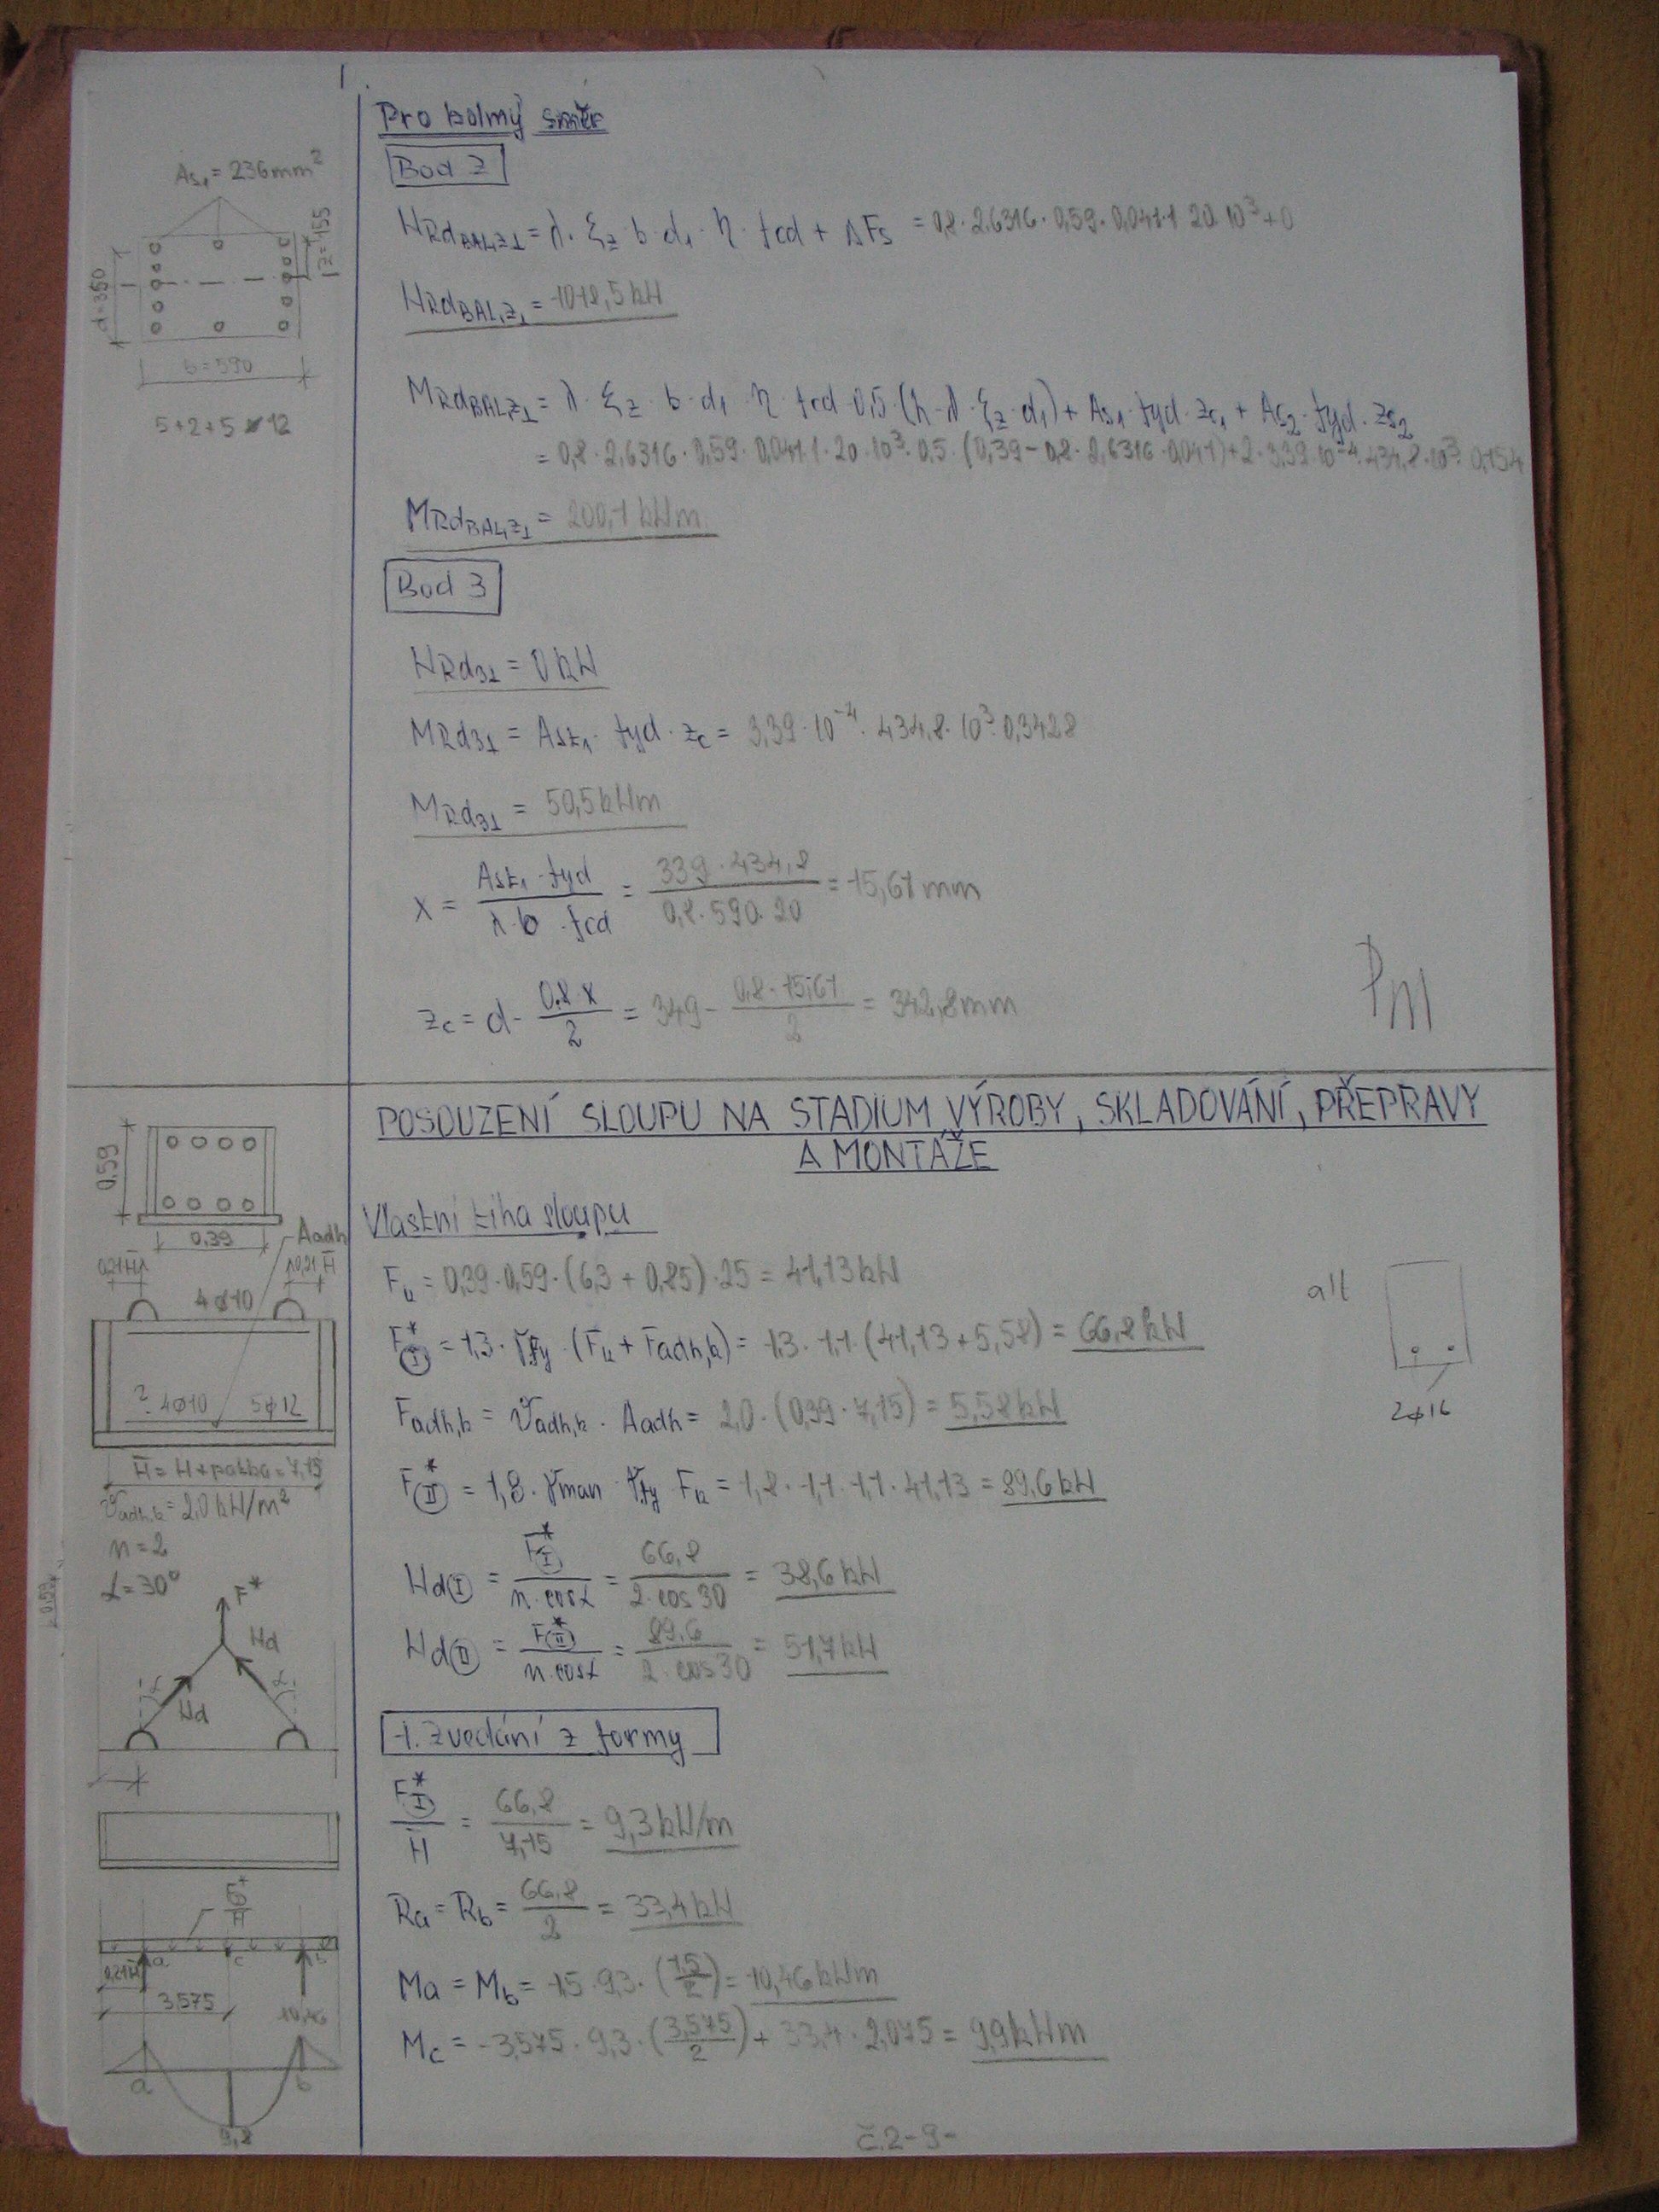 Pro kolmý směr
Bod 2
As₁ = 236mm²
d=350
z=155
b=590
5+2+5 12
NRdBAL,2⊥ = λ · ξ₂ · b · d₁ · η · fcd + ΔFs = 0,8 · 2,6316 · 0,59 · 0,041 · 1 · 20 · 10³ + 0
NRdBAL,2⊥ = 1018,5kN
MRdBAL,2⊥ = λ · ξ₂ · b · d₁ · η · fcd · 0,5 · (h - λ · ξ₂ · d₁) + As₁ · fyd · zs₁ + As₂ · fyd · zs₂
= 0,8 · 2,6316 · 0,59 · 0,041 · 1 · 20 · 10³ · 0,5 · (0,39 - 0,8 · 2,6316 · 0,041) + 2 · 3,39 · 10⁻⁴ · 434,8 · 10³ · 0,154
MRdBAL,2⊥ = 200,1 kNm
Bod 3
NRd3⊥ = 0 kN
MRd3⊥ = Ast₁ · fyd · zc = 3,39 · 10⁻⁴ · 434,8 · 10³ · 0,3428
MRd3⊥ = 50,5kNm
x = Ast₁ · fyd / λ · b · fcd = 339 · 434,8 / 0,8 · 590 · 20 = 15,61 mm
zc = d - 0,8 x / 2 = 349 - 0,8 · 15,61 / 2 = 342,8mm
POSOUZENÍ SLOUPU NA STADIUM VÝROBY, SKLADOVÁNÍ, PŘEPRAVY
A MONTÁŽE
0,59
0,39
Aadh
0,21H̄
0,21 H̄
4ø10
? 4ø10 5ø12
H̄ = H + patka = 7,15
Vadh,k = 2,0 kN/m²
n = 2
α = 30°
Vlastní tíha sloupu
Fk = 0,39 · 0,59 · (6,3 + 0,85) · 25 = 41,13 kN
F*Ⓘ = 1,3 · γfg · (Fk + Fadh,k) = 1,3 · 1,1 · (41,13 + 5,58) = 66,8 kN
alt
2ø16
Fadh,k = Vadh,k · Aadh = 2,0 · (0,39 · 7,15) = 5,58 kN
F*Ⓘ︎Ⓘ = 1,8 · γman · γfg · Fk = 1,8 · 1,1 · 1,1 · 41,13 = 89,6 kN
NdⒾ = F*Ⓘ / n · cosα = 66,8 / 2 · cos30 = 38,6 kN
NdⒾⒾ = F*ⒾⒾ / n · cosα = 89,6 / 2 · cos30 = 51,7 kN
F*
Nd
α
α
Nd
1. Zvedání z formy
F*Ⓘ / H̄ = 66,8 / 7,15 = 9,3 kN/m
Ra = Rb = 66,8 / 2 = 33,4 kN
Ma = Mb = 1,5 · 9,3 · (1,5/2) = 10,46 kNm
Mc = -3,575 · 9,3 · (3,575/2) + 33,4 · 2,075 = 9,9 kNm
F*Ⓘ / H̄
a c b
0,21H̄
3,575
10,46
a b
9,8
č.2-9-